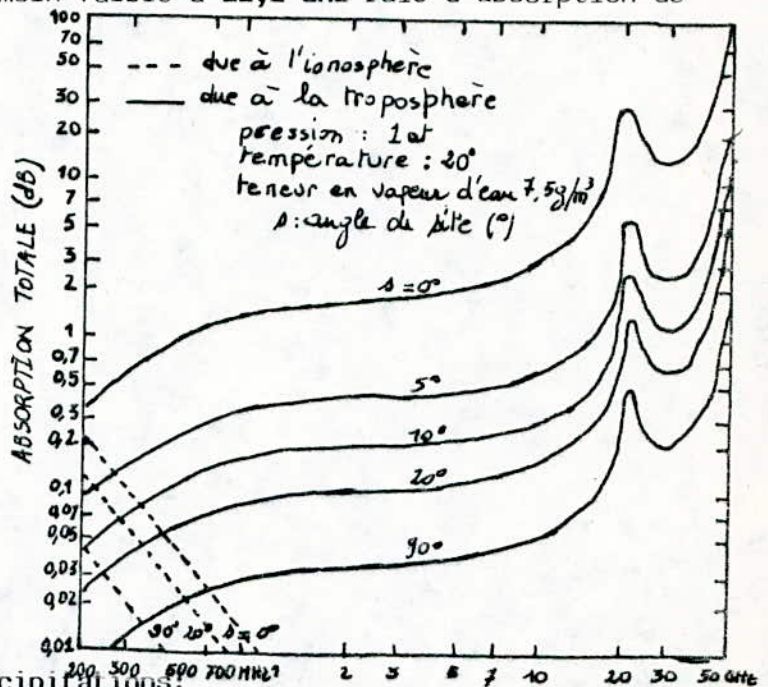 absorption de
100
70
50
30
20
10
7
5
3
2
1
0,7
0,5
0,3
0,2
0,1
0,07
0,05
0,03
0,02
0,01
ABSORPTION TOTALE (dB)
--- due à l'ionosphère
— due à la troposphère
pression : 1 at
température : 20°
teneur en vapeur d'eau 7,5g/m³
s : angle de site (°)
s = 0°
5°
10°
20°
90°
90° 20° s = 0°
200 300 500 700 MHz 1 2 3 5 7 10 20 30 50 GHz
cipitations.